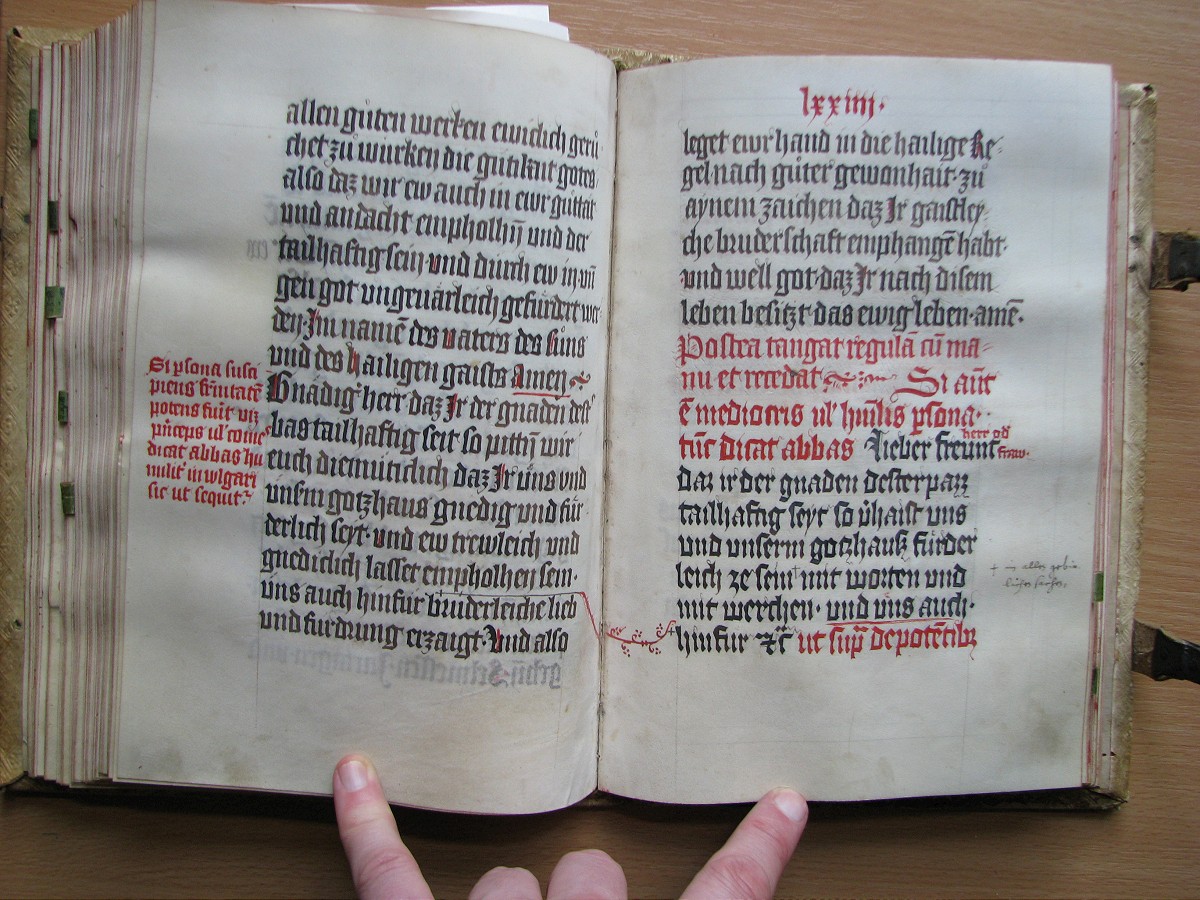 allen guͦten werken ewiclich geruͦ
chet zuͦ wurken die gutikait gotes
also daz wir ew auch in ewr guttat
und andacht empholhn̄ und der
tailhaftig sein und durch ew in un̄
gen got ungeuärleich gefürdert wer
den Im namē des vaters des suns
und des hailigen gaists Amen
Si psona susci
piens frn̄itatē
potens fu̇it uiꝫ
pn̄ceps ul' comes
dicat abbas hu
milit' in wlgari
sic ut sequit᷑
Gnädig' herr daz Ir der gnaden dest'
bas tailhaftig seit so pittn̄ wir
euch diemüticlich daz Ir uns und
unsm gotzhaus gnedig und für
derlich seyt und ew trewleich und
gnediclich lasset empholhen sein
uns auch hinfur bruderleiche lieb
und furdrung erzaigt Und also
lxxiiij.
leget ewr hand in die hailige Re-
gel nach guͦter gewonhait zü
aynem zaichen daz Ir gaistley-
che bruderschaft emphangē habt
und well got daz Ir nach disem
leben besitzt das ewig leben amē.
Postea tangat regulā cū ma-
nu et recedat Si aūt
ē mediocris ul' hūilis psona
tūc dicat abbas Lieber freunt
herr od'
fraw.
daz ir der gnaden dester pazz
tailhaftig seyt so ühaist uns
und unserm gotzhaus fürder
leich ze sein + mit worten und
+ in allen
mit werchen und uns auch
hinfur ꝛc̄ ut sup̄ de potētibꝫ